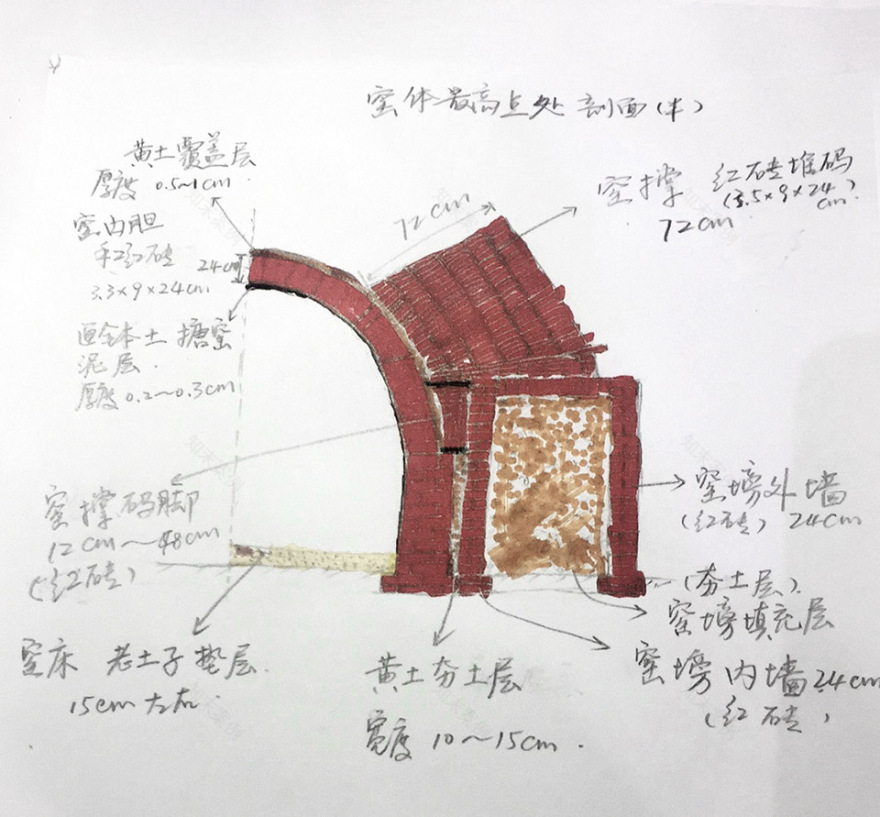 窑体最高点处 剖面(半)
黄土覆盖层
厚度 0.5~1cm
窑内胆
红砖
3.3×9×24cm
24cm
72cm
窑撑 红砖堆码
(3.5×9×24cm)
72cm
本土 搪窑
泥层
厚度 0.2~0.3cm
窑撑码脚
12cm~48cm
(红砖)
窑塝外墙
(红砖) 24cm
(夯土层)
窑塝填充层
窑塝内墙 24cm
(红砖)
窑床 老土子垫层
15cm左右
黄土夯土层
宽度 10~15cm